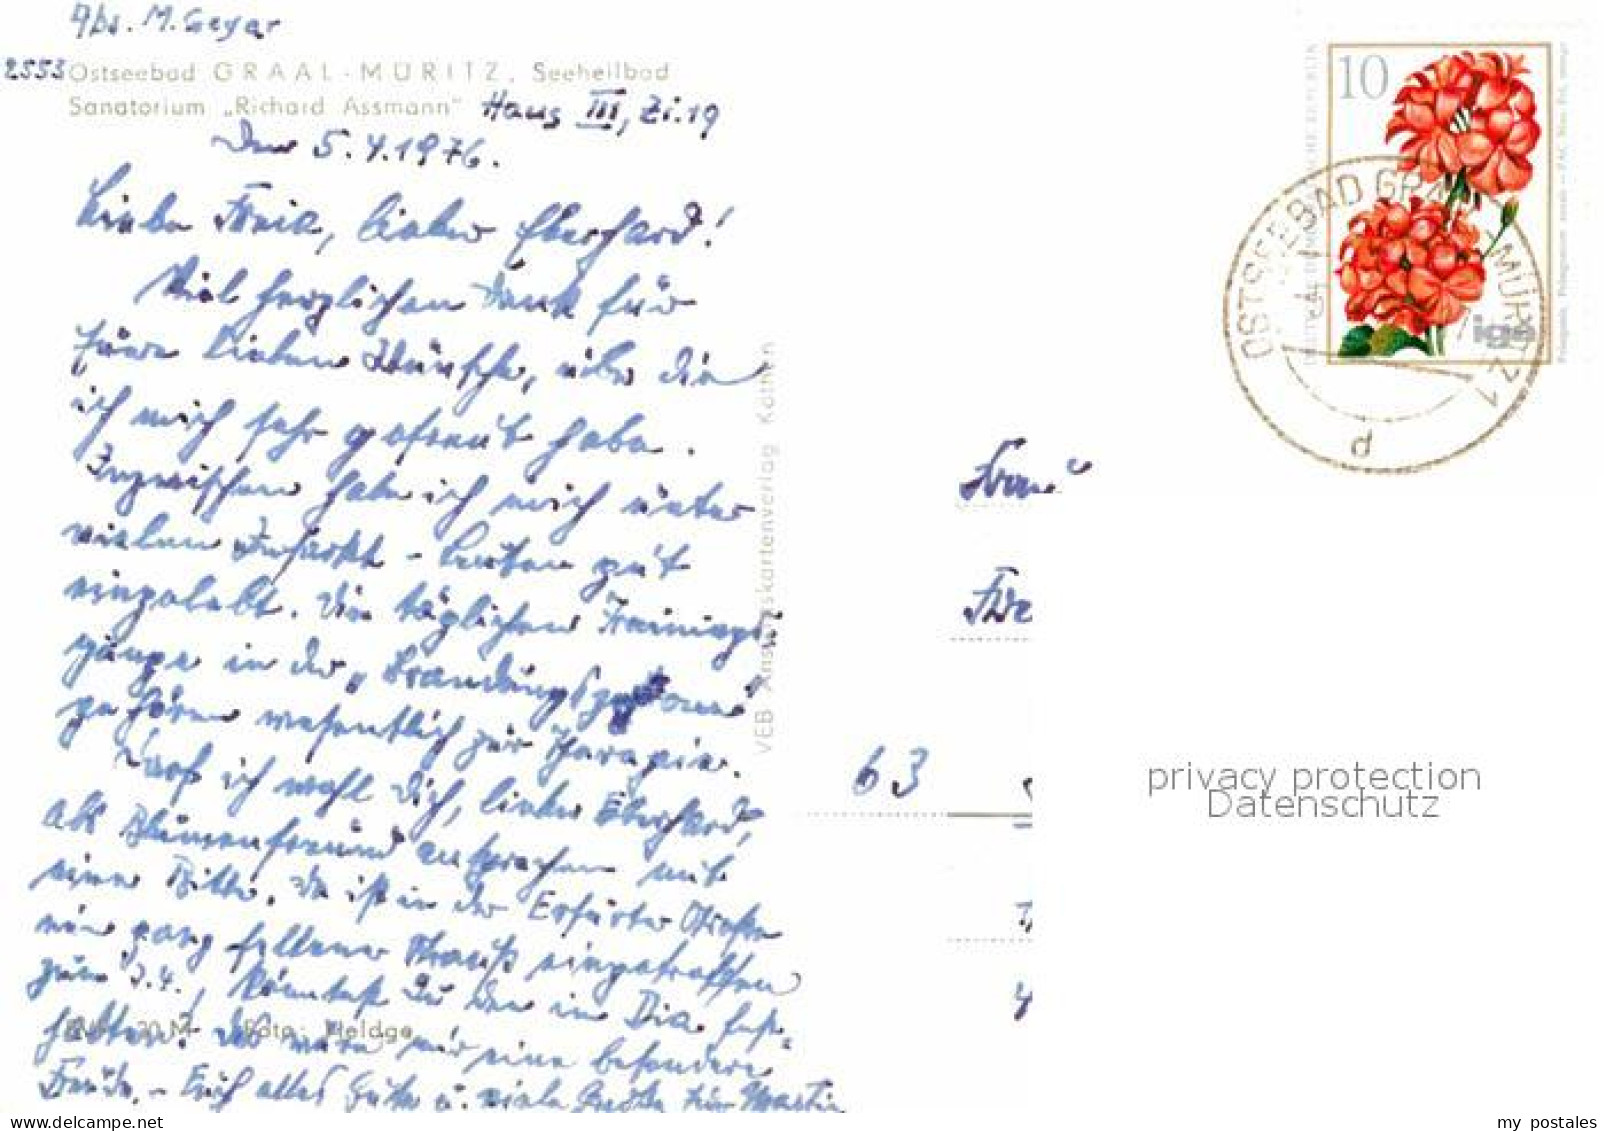 Abs. M. Geyer
2553 Ostseebad GRAAL-MÜRITZ, Seeheilbad
Sanatorium „Richard Assmann" Haus III, Zi. 19
Den 5.4.1976.
Liebe Freia, lieber Eberhard!
Viel herzlichen Dank für
Eure lieben Wünsche, über die
ich mich sehr gefreut habe.
Inzwischen habe ich mich unter
vielen Infarkt-Leuten gut
eingelebt. Die täglichen Trainings-
gänge in der „Brandungszone"
gehören wesentlich zur Therapie.
Darf ich wohl Dich, lieber Eberhard,
als Blumenfreund ansprechen mit
einer Bitte. Da ist in der Erfurter Straße
ein ganz seltener Strauß eingetroffen
zum 3.4., könntest Du den im Dia fest-
halten? Das wäre mir eine besondere
Freude. – Euch alles Gute u. viele Grüße für Martin
VEB Ansichtskartenverlag Köthen
Foto: Heldge
10
DEUTSCHE DEMOKRATISCHE REPUBLIK
iga
OSTSEEBAD GRAAL-MÜRITZ 1
d
Frau
63
privacy protection
Datenschutz
my postales